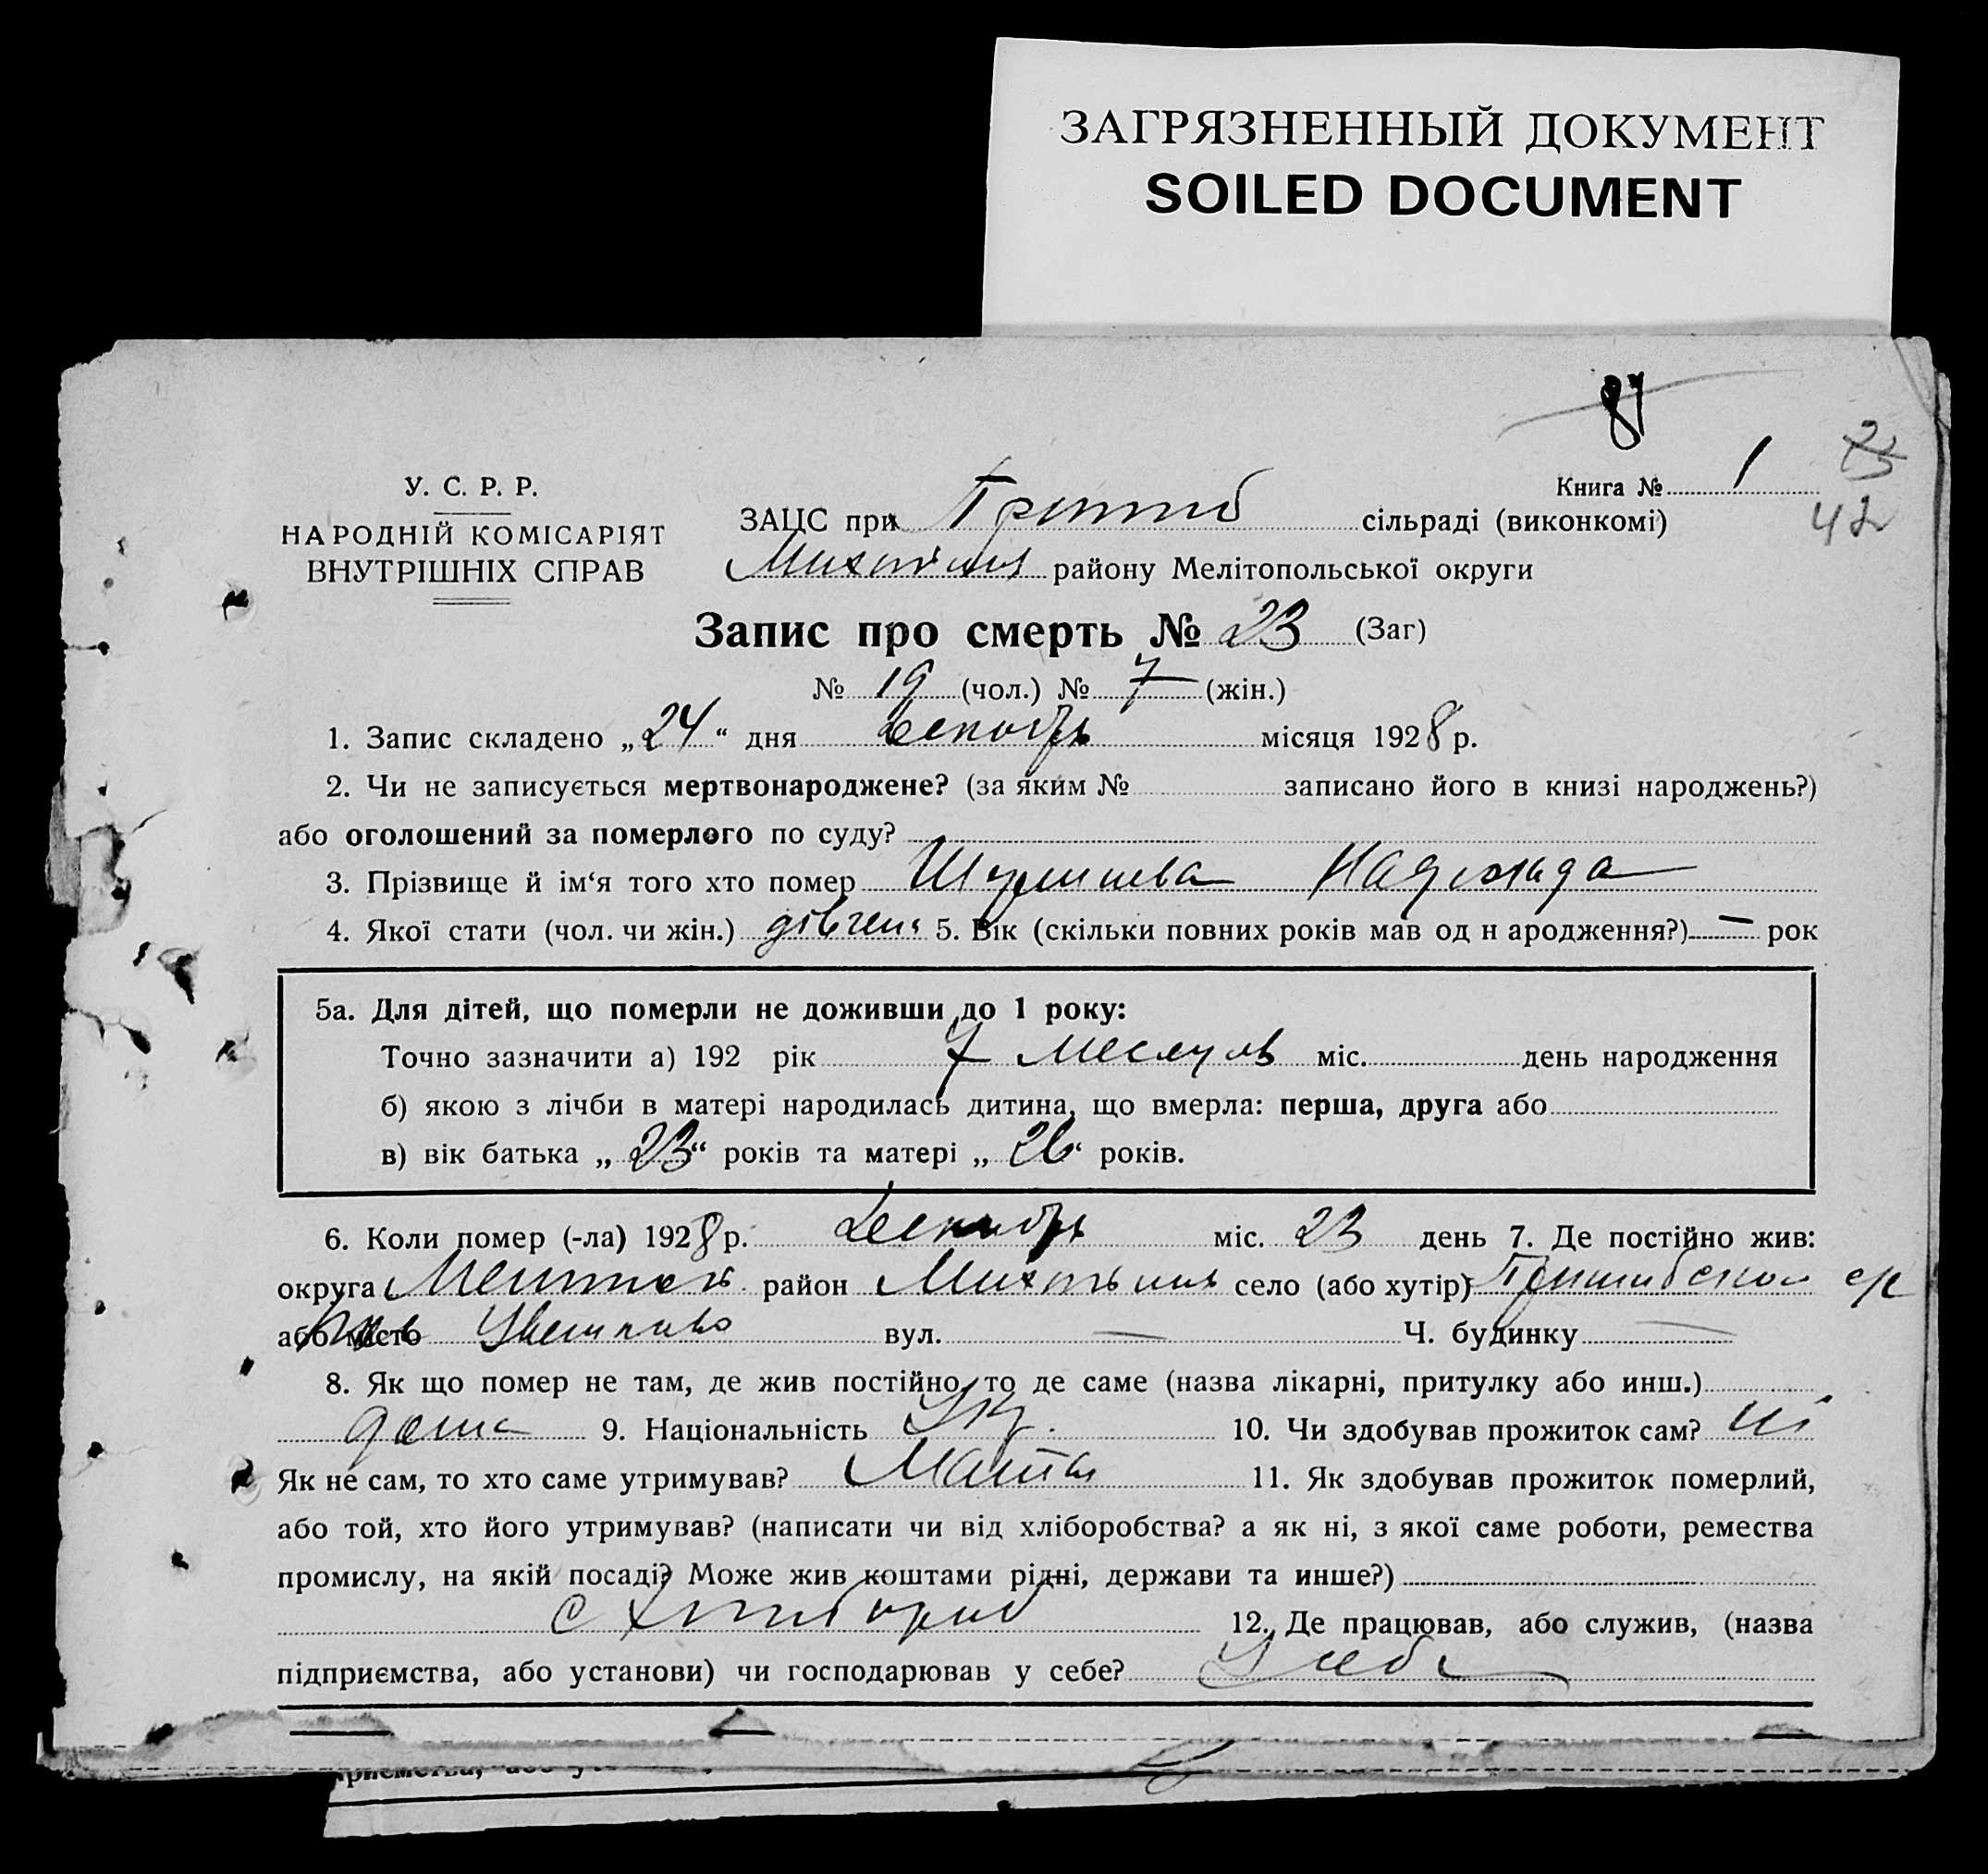 ЗАГРЯЗНЕННЫЙ ДОКУМЕНТ
SOILED DOCUMENT
Книга № 1
42
У. С. Р. Р.
НАРОДНІЙ КОМІСАРІЯТ
ВНУТРІШНІХ СПРАВ
ЗАЦС при сільраді (виконкомі)
району Мелітопольської округи
Запис про смерть № 23 (Заг)
№ 19 (чол.) № 7 (жін.)
1. Запис складено „24“ дня Декабрь місяця 1928 р.
2. Чи не записується мертвонароджене? (за яким № записано його в книзі народжень?)
або оголошений за померлого по суду?
3. Прізвище й ім‘я того хто помер Надежда
4. Якої стати (чол. чи жін.) 5. Вік (скільки повних років мав од н ародження?) — рок
5а. Для дітей, що померли не доживши до 1 року:
Точно зазначити а) 192 рік 7 месяцев міс. день народження
б) якою з лічби в матері народилась дитина, що вмерла: перша, друга або
в) вік батька „23“ років та матері „26“ років.
6. Коли помер (-ла) 1928 р. Декабрь міс. 23 день 7. Де постійно жив:
округа район село (або хутір)
або місто вул. — Ч. будинку —
8. Як що помер не там, де жив постійно, то де саме (назва лікарні, притулку або инш.)
дома 9. Національність Укр. 10. Чи здобував прожиток сам? ні
Як не сам, то хто саме утримував? 11. Як здобував прожиток померлий,
або той, хто його утримував? (написати чи від хліборобства? а як ні, з якої саме роботи, ремества
промислу, на якій посаді? Може жив коштами рідні, держави та инше?)
12. Де працював, або служив, (назва
підприємства, або установи) чи господарював у себе? У себе